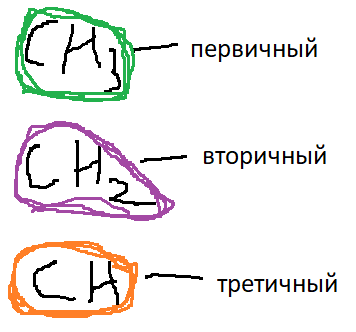 CH3 первичный
CH2 вторичный
CH третичный